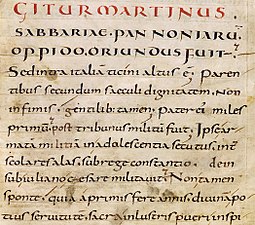 GITUR MARTINUS.
SABBARIAE. PANNONIARŪ.
OPPIDO. ORIUNDUS FUIT.
Sed intra italiā ticini altus ē; Paren
tibus secundum saeculi dignitatem. Non
infimis. gentilib; tamen. Pater ei miles
primū. post tribunus militū fuit. Ipse ar
matā militiā in adolescentia secutus. int
scolares alas. sub rege constantio. dein
sub iuliano cęsare militavit. Non tamen
sponte. quia a primis fere annis. divinā po
tius servitutē. sacra inlustris pueri inspi